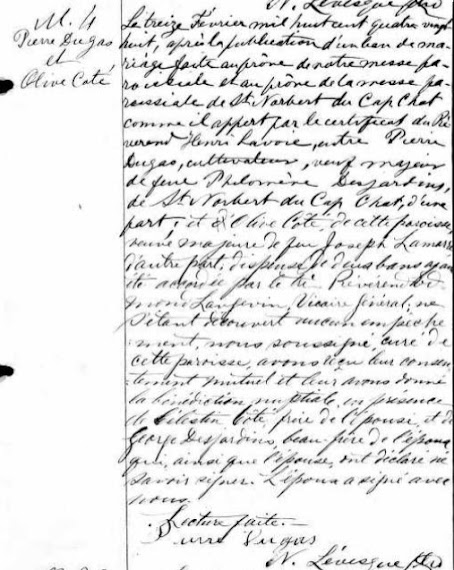 N. Lévesque Ptre
M. 4
Pierre Dugas
et
Olive Coté
Le treize Février mil huit cent quatre vingt
huit, après la publication d'un ban de ma-
riage faite au prône de notre messe pa-
roissiale et au prône de la messe pa-
roissiale de St Norbert du Cap Chat
comme il appert par le certificat du Ré-
verend Henri Lavoie, entre Pierre
Dugas, cultivateur, veuf majeur
de feue Philomène Desjardins,
de St Norbert du Cap Chat, d'une
part; et d'Olive Coté, de cette paroisse,
veuve majeure de feu Joseph Lamarre
d'autre part, dispense de deux bans ayant
été accordée par le très Révérend Ed-
mond Langevin, Vicaire Général, ne
s'étant découvert aucun empêche-
ment, nous soussigné, curé de
cette paroisse, avons reçu leur consen-
tement mutuel et leur avons donné
la bénédiction nuptiale en présence
de Célestin Coté, frère de l'épouse, et de
George Desjardins, beau frère de l'époux
qui, ainsi que l'épouse, ont déclaré ne
savoir signer. L'époux a signé avec
nous.
Lecture faite.
Pierre Dugas
N. Lévesque Ptre